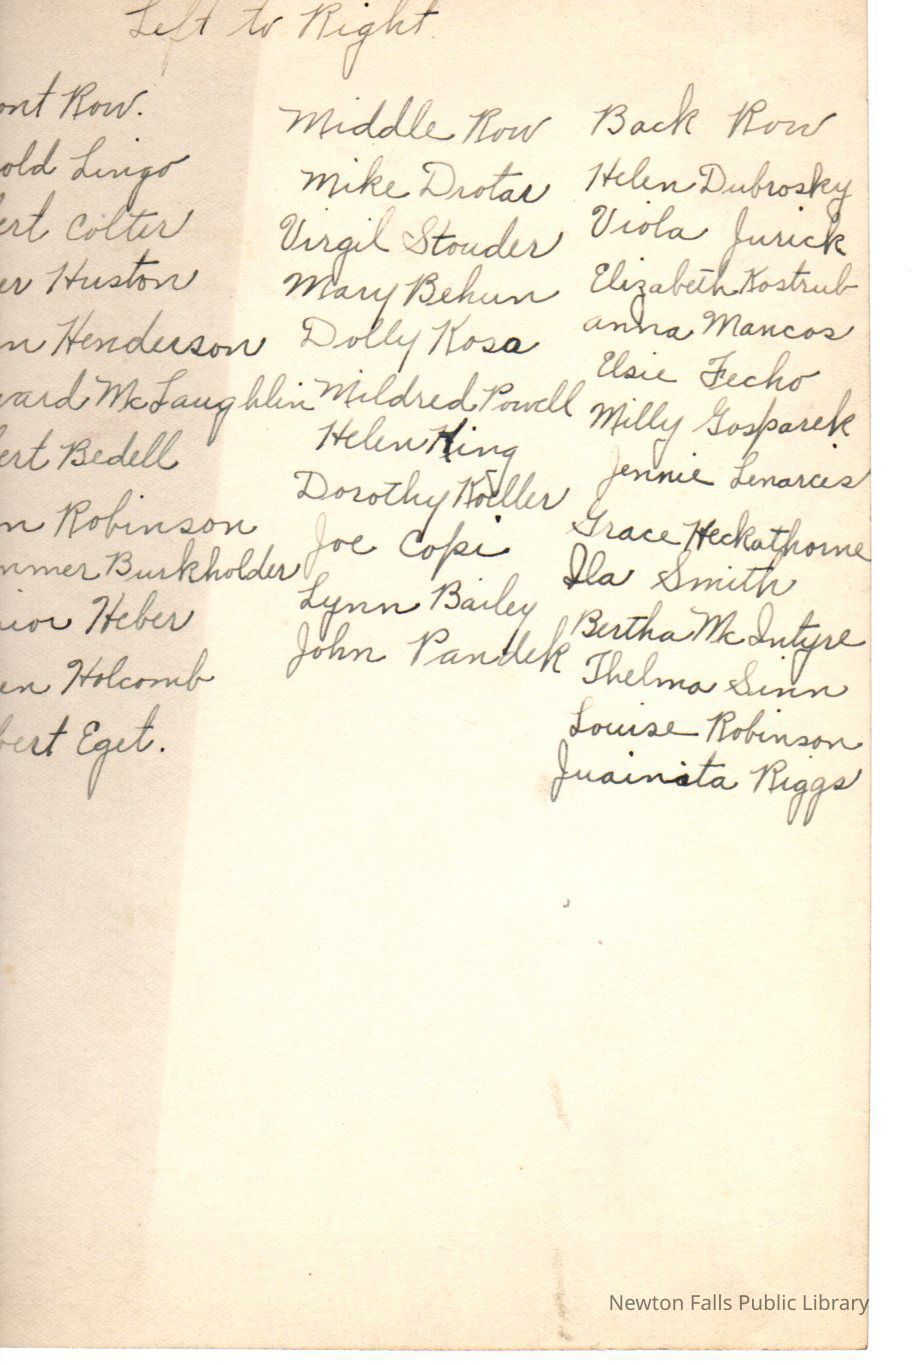 Left to Right
ont Row.
old Lingo
ert Colter
er Huston
n Henderson
vard McLaughlin
ert Bedell
n Robinson
mmer Burkholder
nior Heber
en Holcomb
bert Eget.
Middle Row
Mike Drotar
Virgil Stouder
Mary Behun
Dolly Kosa
Mildred Powell
Helen King
Dorothy Koeller
Joe Copi
Lynn Bailey
John Pandek
Back Row
Helen Dubrosky
Viola Jurick
Elizabeth Kostrub
Anna Mancos
Elsie Fecho
Milly Gosparek
Jennie Lenarcis
Grace Heckathorne
Ila Smith
Bertha McIntyre
Thelma Sinn
Louise Robinson
Juainita Riggs
Newton Falls Public Library